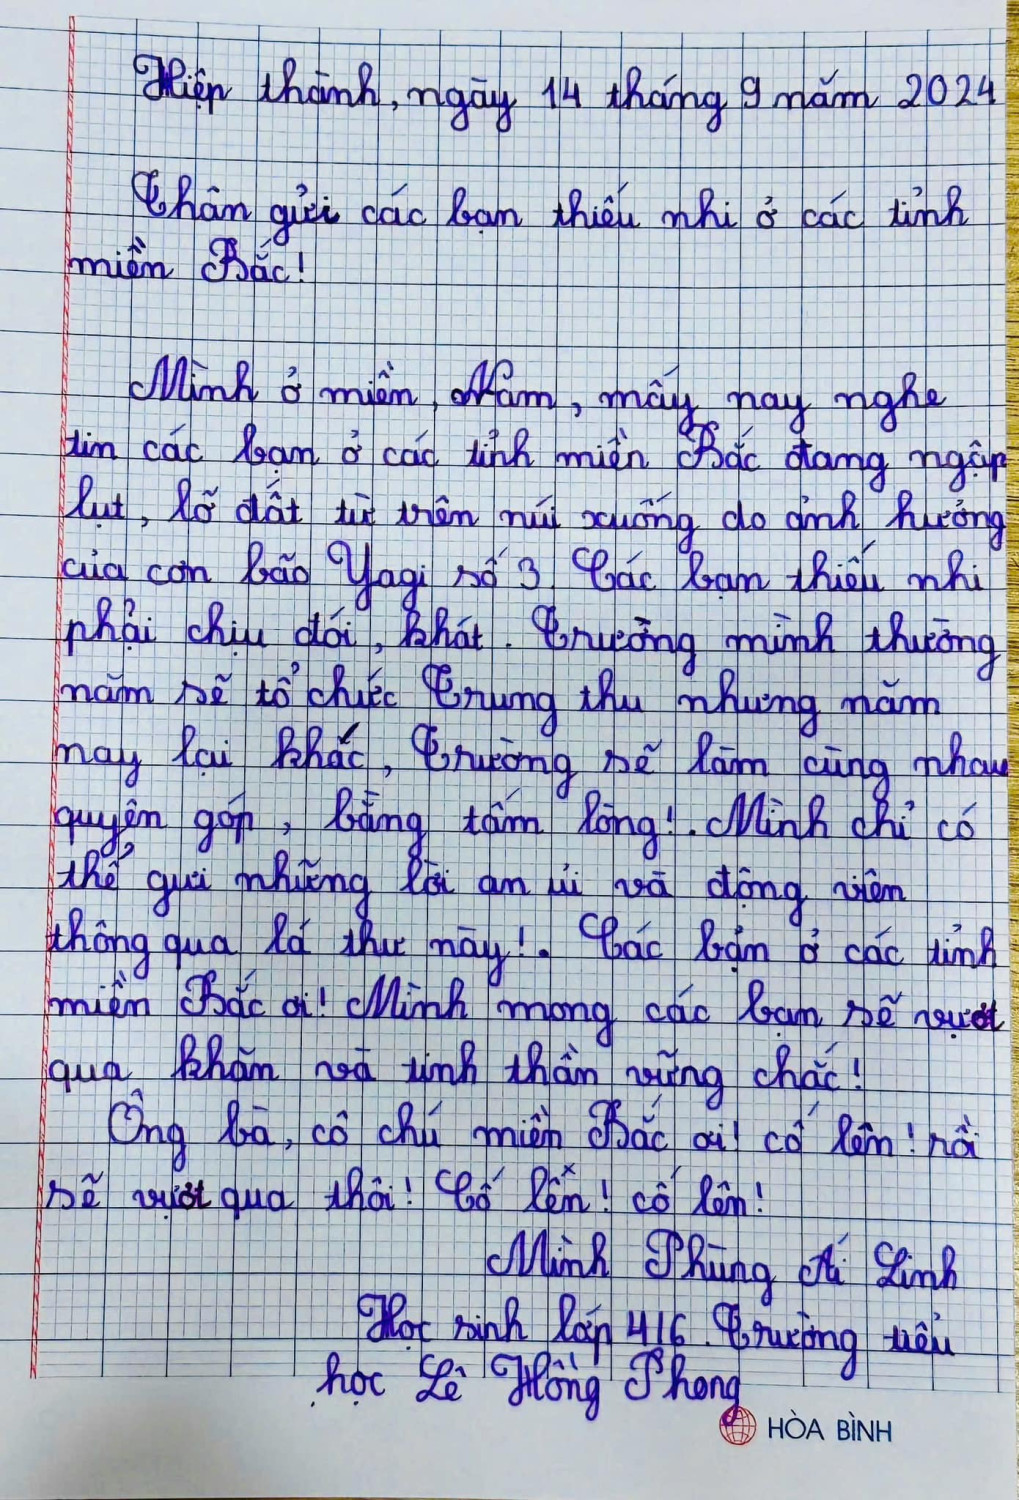 Hiệp thành, ngày 14 tháng 9 năm 2024
Thân gửi các bạn thiếu nhi ở các tỉnh
miền Bắc!
Mình ở miền Nam, mấy nay nghe
tin các bạn ở các tỉnh miền Bắc đang ngập
lụt, lỡ đất từ trên núi xuống do ảnh hưởng
của cơn bão Yagi số 3. Các bạn thiếu nhi
phải chịu đói, khát. Trường mình thường
năm sẽ tổ chức Trung thu nhưng năm
nay lại khác, Trường sẽ làm cùng nhau
quyên góp, bằng tấm lòng!. Mình chỉ có
thể gưi những lời an ủi và động viên
thông qua lá thư này!. Các bạn ở các tỉnh
miền Bắc ơi! Mình mong các bạn sẽ vượt
qua khăn và tinh thần vững chắc!
Ông bà, cô chú miền Bắc ơi! cố lên! rồi
sẽ vượt qua thôi! Cố lên! cố lên!
Mình Phùng Ái Linh
Học sinh lớp 4/6. Trường tiểu
học Lê Hồng Phong
HÒA BÌNH